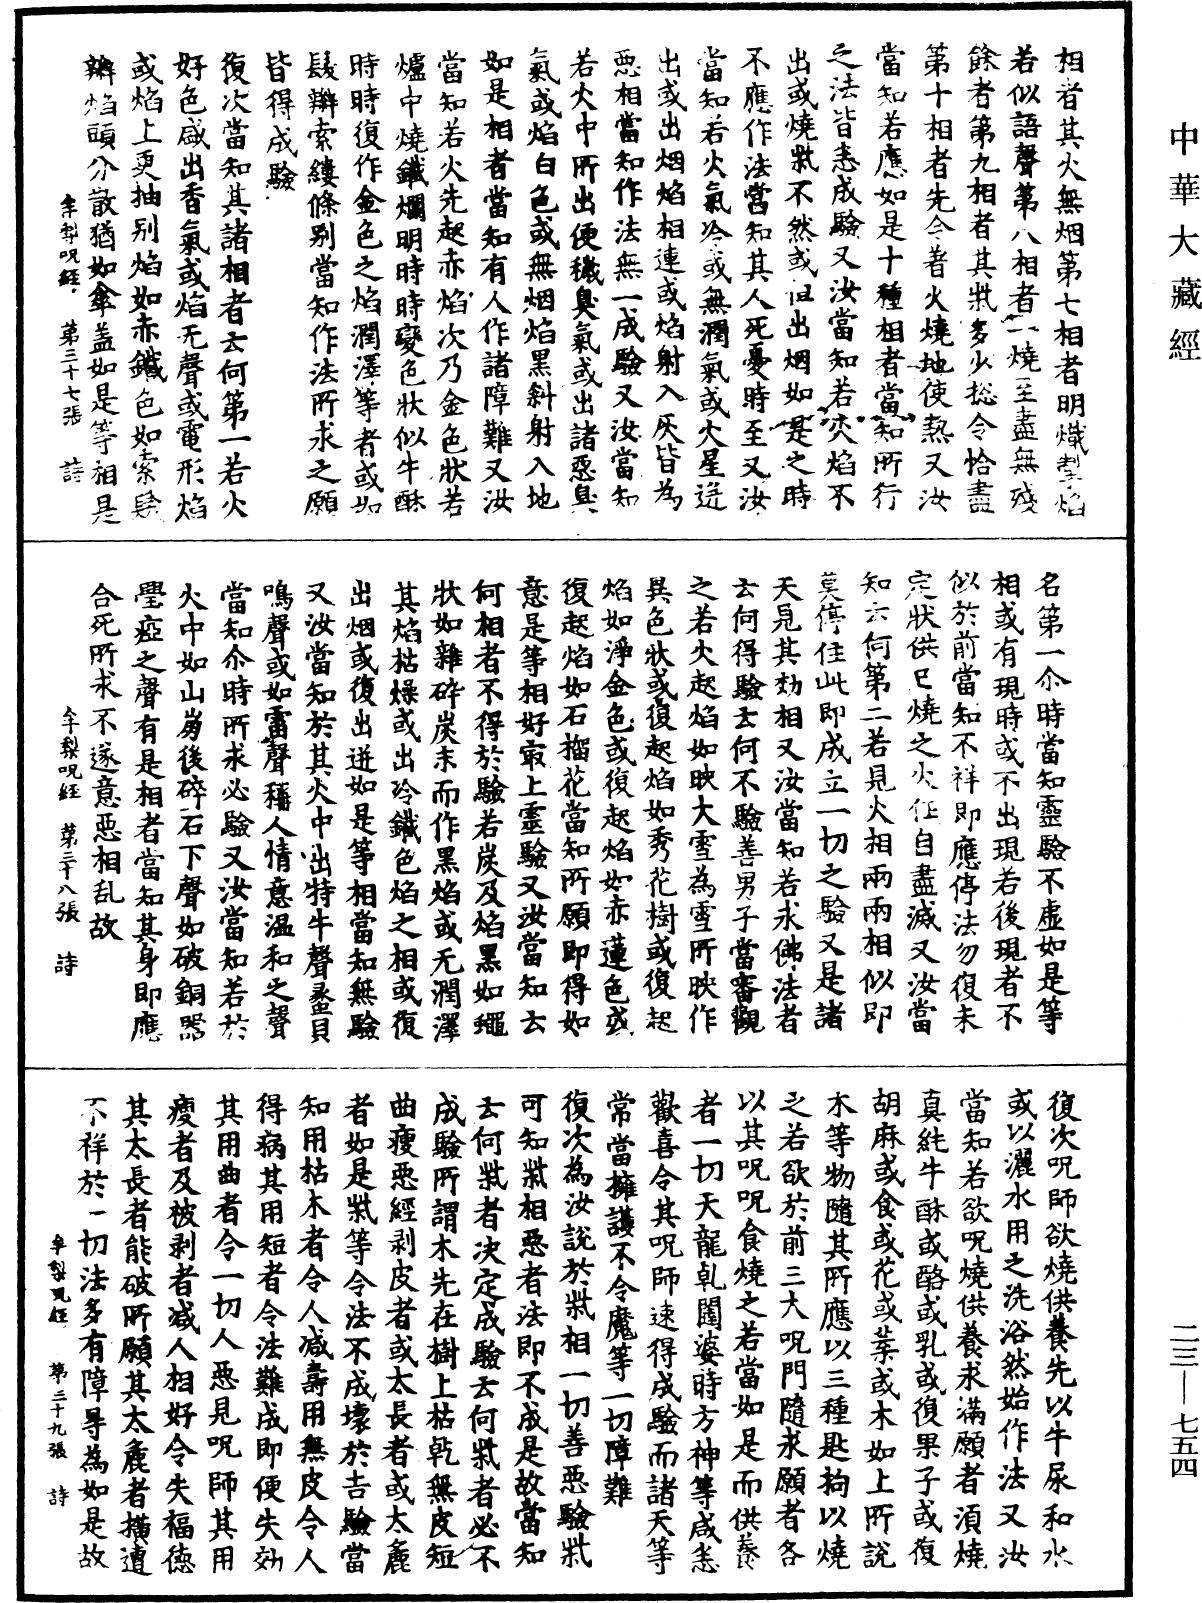 中華大藏經
相者其火無烟第七相者明熾掣焰
若似語聲第八相者一燒至盡無殘
餘者第九相者其㷊多少捴令恰盡
第十相者先令著火燒地使熱又汝
當知若應如是十種相者當知所行
之法皆悉成驗又汝當知若火焰不
出或燒㷊不然或但出烟如是之時
不應作法當知其人死憂時至又汝
當知若火氣冷或無潤氣或火星迸
出或出烟焰相連或焰射入灰皆為
惡相當知作法無一成驗又汝當知
若火中所出便穢臭氣或出諸惡臭
氣或焰白色或無烟焰黑斜射入地
如是相者當知有人作諸障難又汝
當知若火先起赤焰次乃金色狀若
爐中燒鐵爛明時時變色狀似牛酥
時時復作金色之焰潤澤等者或如
髮辮索縷條別當知作法所求之願
皆得成驗
復次當知其諸相者云何第一若火
好色盛出香氣或焰无聲或電形焰
或焰上更抽別焰如赤鐵色如索髮
辮焰頭分散猶如傘盖如是等相是
牟梨呪經 第三十七張 詩
名第一尒時當知靈驗不虛如是等
相或有現時或不出現若後現者不
似於前當知不祥即應停法勿復未
定狀供已燒之火任自盡滅又汝當
知云何第二若見火相兩兩相似即
莫停住此即成立一切之驗又是諸
天見其効相又汝當知若求佛法者
云何得驗云何不驗善男子當審觀
之若火起焰如映大雪為雪所映作
異色狀或復起焰如秀花樹或復起
焰如淨金色或復起焰如赤蓮色或
復起焰如石榴花當知所願即得如
意是等相好㝡上靈驗又汝當知云
何相者不得於驗若炭及焰黑如蠅
狀如雜碎炭末而作黑焰或无潤澤
其焰枯燥或出冷鐵色焰之相或復
出烟或復出迸如是等相當知無驗
又汝當知於其火中出特牛聲蠡貝
鳴聲或如雷聲稱人情意温和之聲
當知尒時所求必驗又汝當知若於
火中如山崩後碎石下聲如破銅器
壂瘂之聲有是相者當知其身即應
合死所求不遂意惡相乱故
牟梨呪經 第三十八張 詩
復次呪師欲燒供養先以牛尿和水
或以灑水用之洗浴然始作法又汝
當知若欲呪燒供養求滿願者湏燒
真純牛酥或酪或乳或復果子或復
胡麻或食或花或葉或木如上所說
木等物隨其所應以三種匙抅以燒
之若欲於前三大呪門隨求願者各
以其呪呪食燒之若當如是而供養
者一切天龍乹闥婆時方神等咸悉
歡喜令其呪師速得成驗而諸天等
常當擁護不令魔等一切障難
復次為汝說於㷊相一切善惡驗㷊
可知㷊相惡者法即不成是故當知
云何㷊者決定成驗云何㷊者必不
成驗所謂木先在樹上枯乾無皮短
曲瘦惡經剥皮者或太長者或太麁
者如是㷊等令法不成壞於吉驗當
知用枯木者令人減壽用無皮令人
得病其用短者令法難成即便失効
其用曲者令一切人惡見呪師其用
瘦者及被剥者减人相好令失福德
其太長者能破所願其太麁者撗遭
不祥於一切法多有障㝵為如是故
牟梨呪經 第三十九張 詩
二三—七五四